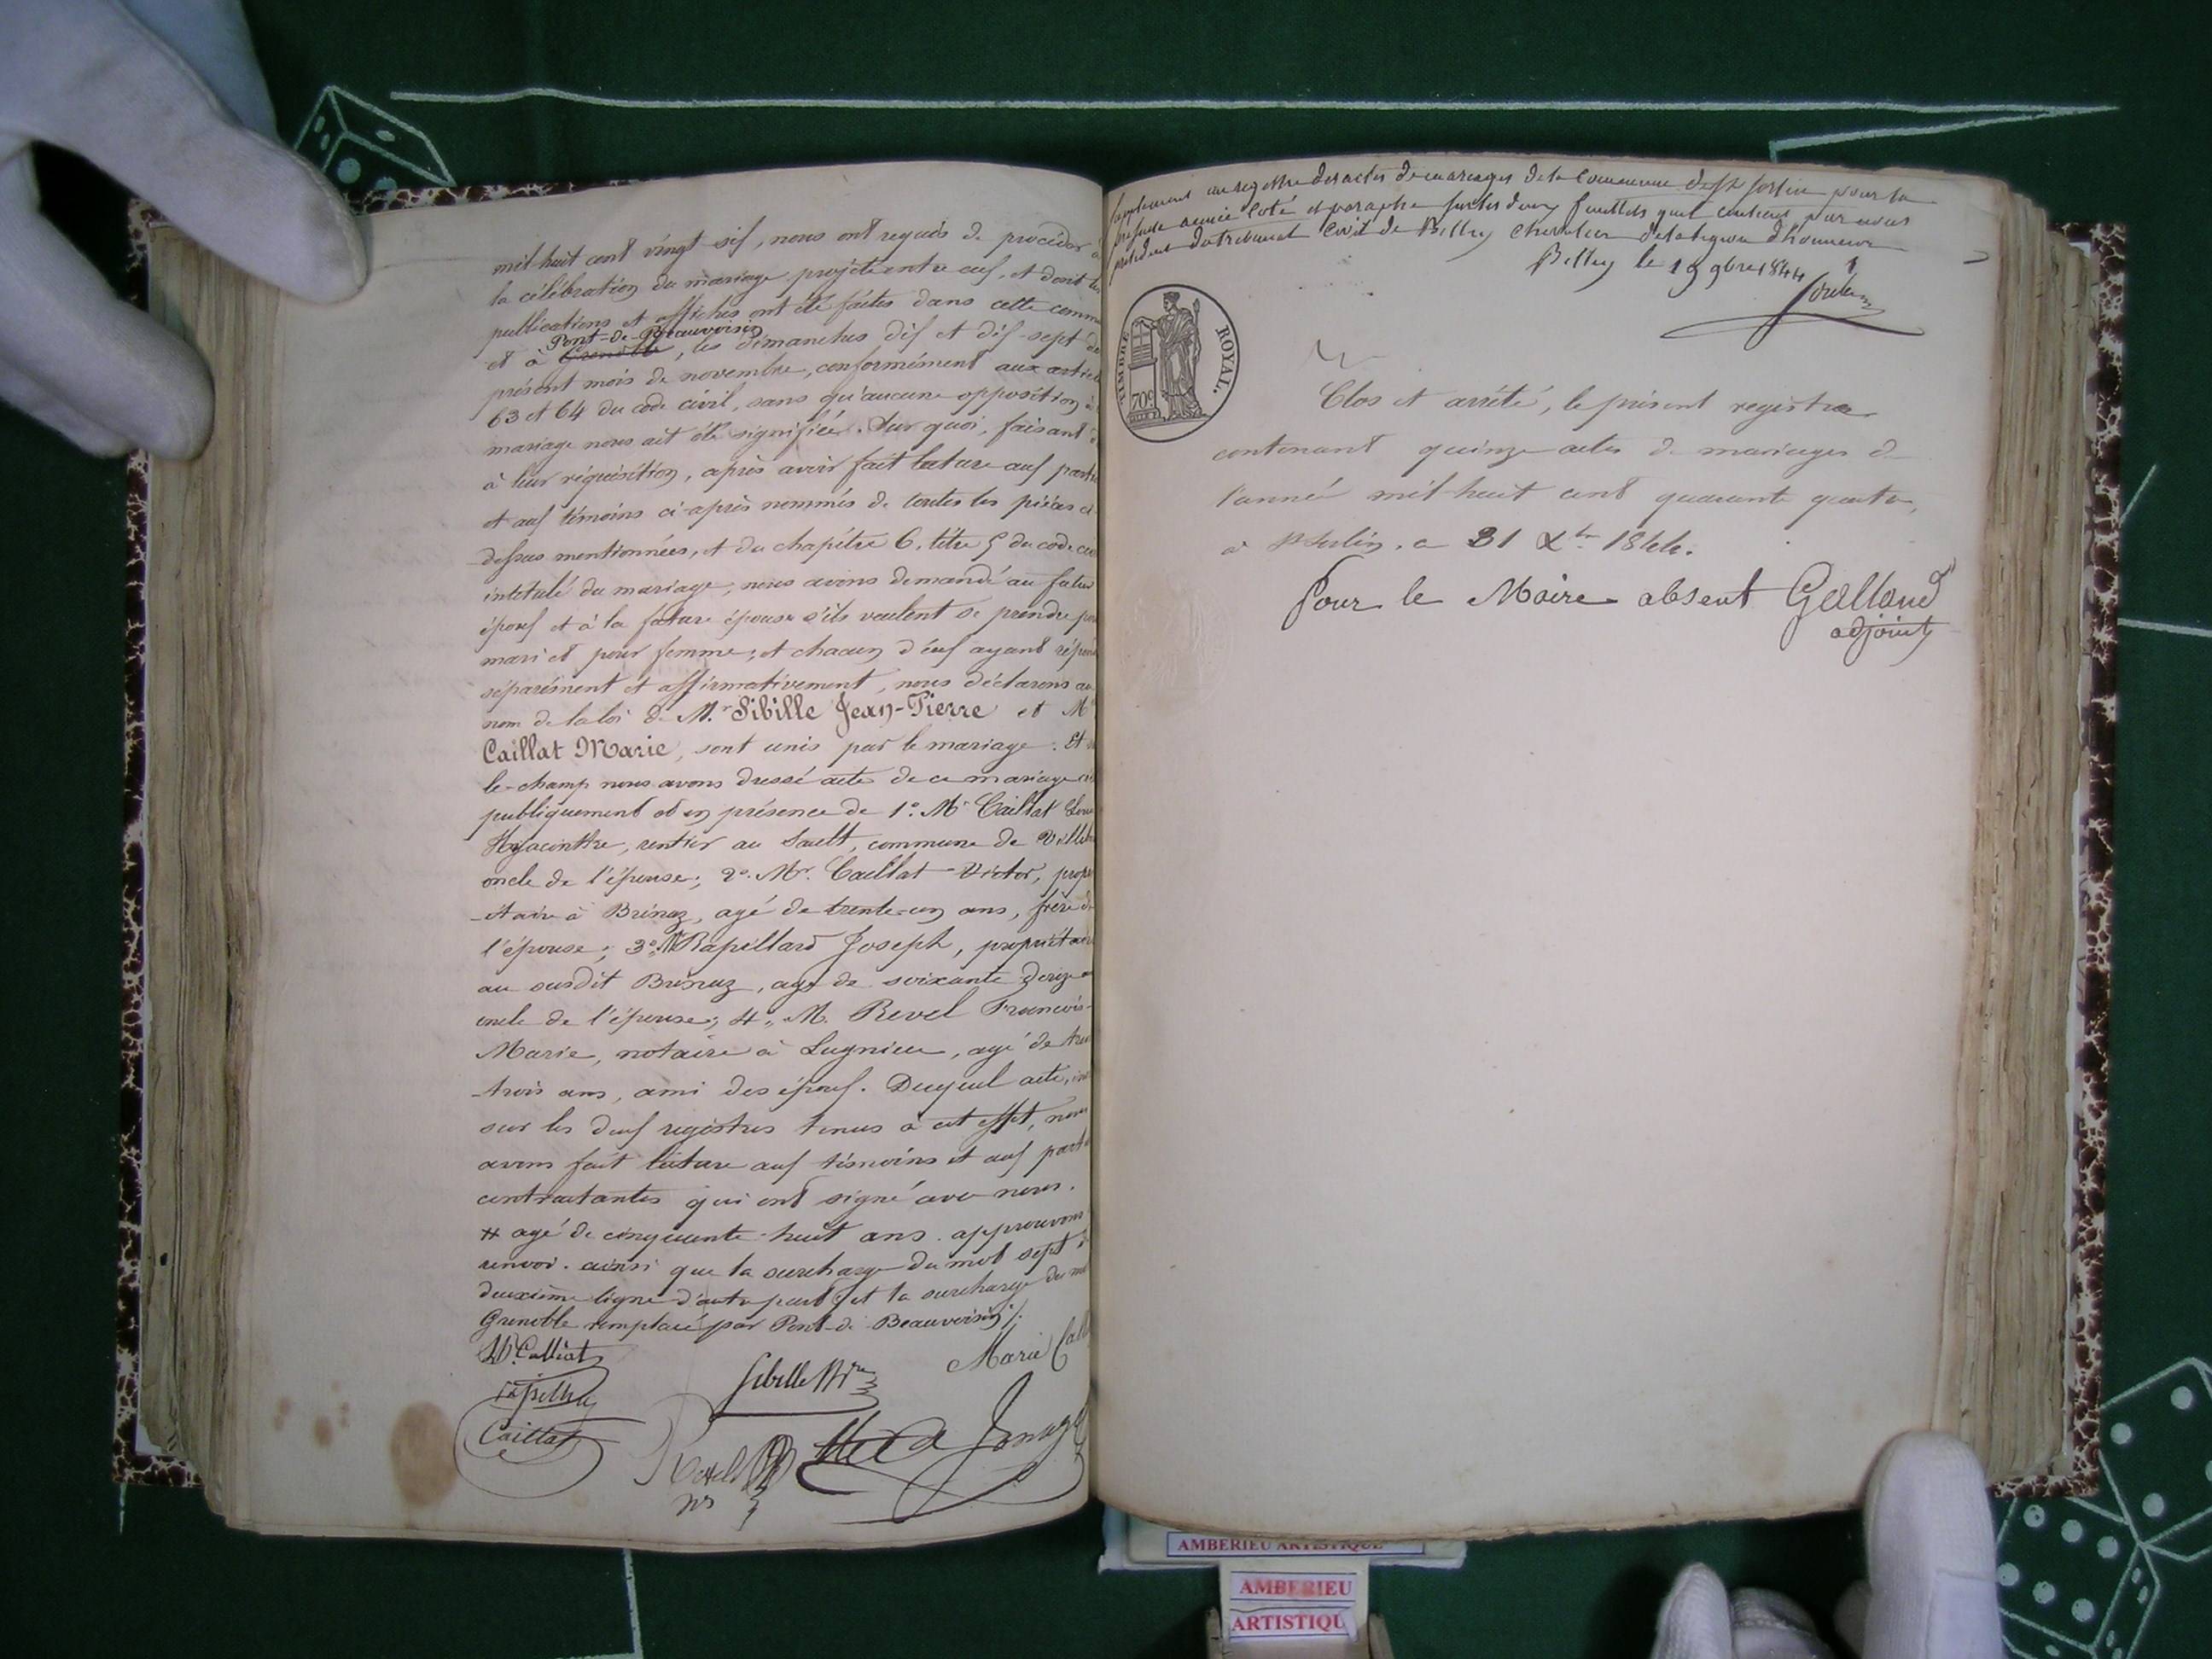 mil huit cent vingt-sif, nous ont requis de procéder à
la célébration du mariage projeté entre euf, et dont les
publications et affiches ont été faites dans cette comm
Pont-de-Beauvoisin
et à Grenoble, les dimanches dif et dif-sept de
présent mois de novembre, conformément aux article
63 et 64 du code civil, sans qu'aucune opposition à
mariage nous ait été signifiée. Sur quoi, faisant
à leur réquisition, après avoir fait lecture auf parti
et auf témoins ci-après nommés de toutes les pièces ci
dessus mentionnées, et du chapitre 6, titre 5 du code civ
intitulé du mariage, nous avons demandé au futur
épouf et à la future épouse s'ils veulent se prendre po
mari et pour femme; et chacun d'euf ayant répon
séparément et affirmativement, nous déclarons au
nom de la loi de M.r Sibille Jean-Pierre et M
Caillat Marie, sont unis par le mariage. Et
le-champ nous avons dressé acte de ce mariage
publiquement et en présence de 1°. Mr Caillat Loui
Hyacinthe, rentier au Sault, commune de Villeb
oncle de l'épouse; 2°. Mr. Caillat Victor, propri
-étaire à Brénaz, agé de trente-un ans, frère de
l'épouse; 3°. Mr Rapillard Joseph, propriétaire
au susdit Brénaz, agé de soixante-treize
oncle de l'épouse; 4°. M. Revel François-
Marie, notaire à Lagnieu, agé de tren
-trois ans, ami des épouf. Duquel acte,
sur les deuf registres tenus à cet effet, nous
avons fait lecture auf témoins et auf parti
contractantes qui ont signé avec nous.
# agé de cinquante-huit ans. approuvons
renvoi. ainsi que la surcharge du mot sept
deuxième ligne d'autre part, et la surcharge du mo
Grenoble remplacé par Pont-de-Beauvoisin ./.
Marie Cail
Sibille
Caillat
Revel
Supplement au registre des actes de mariages de la Commune de St Sorlin pour la
presente année Coté et paraphé sur les deux feuillets quil contient par nous
president du tribunal Civil de Belley Chevalier de la legion d'honneur
Belley le 19 9bre 1844
1
TIMBRE ROYAL.
70c.
Clos et arrêté, le présent registre
contenant quinze actes de mariages de
l'année mil huit cent quarante quatre,
à St Sorlin, ce 31 Xbre 1844.
Pour le Maire absent Galland
adjoint
AMBERIEU ARTISTIQUE
AMBERIEU
ARTISTIQU